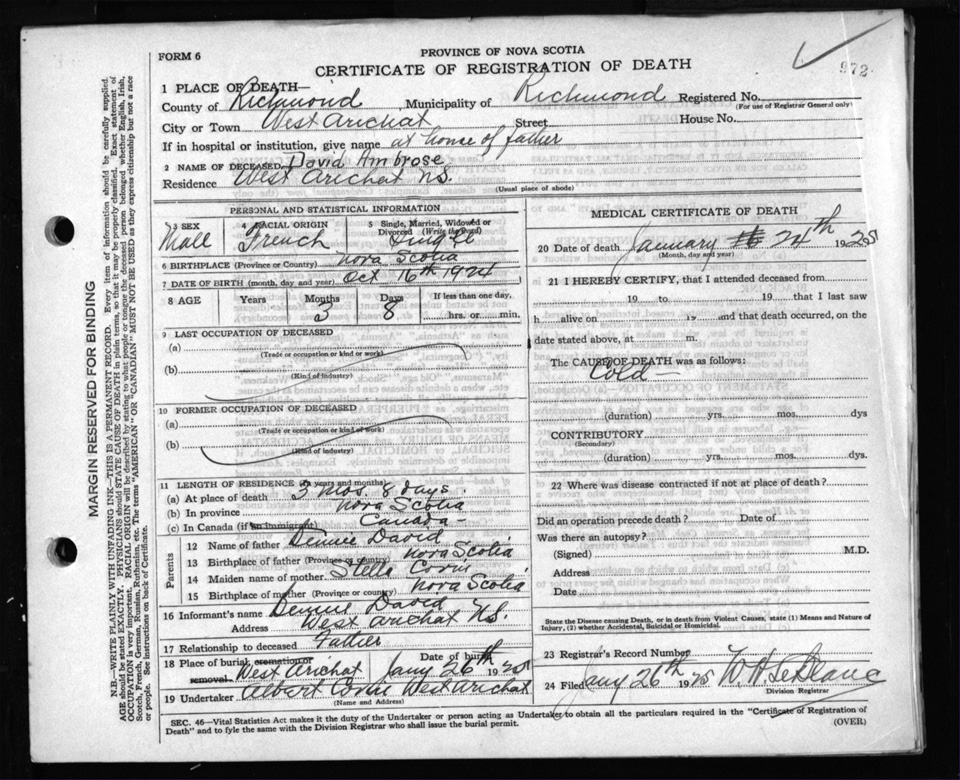 FORM 6
PROVINCE OF NOVA SCOTIA
CERTIFICATE OF REGISTRATION OF DEATH
972
1 PLACE OF DEATH—
County of Richmond, Municipality of Richmond Registered No.
(For use of Registrar General only)
City or Town West Arichat Street House No.
If in hospital or institution, give name at home of father
2 NAME OF DECEASED David Ambrose
Residence West Arichat N.S.
(Usual place of abode)
PERSONAL AND STATISTICAL INFORMATION
3 SEX 4 RACIAL ORIGIN 5 Single, Married, Widowed or Divorced (Write the word)
Mall French Single
6 BIRTHPLACE (Province or Country) Nova Scotia
7 DATE OF BIRTH (month, day and year) Oct 16th 1924
8 AGE Years Months Days If less than one day,
3 8 hrs. or min.
9 LAST OCCUPATION OF DECEASED
(a)
(Trade or occupation or kind or work)
(b)
(Kind of industry)
10 FORMER OCCUPATION OF DECEASED
(a)
(Trade or occupation or kind of work)
(b)
(Kind of industry)
11 LENGTH OF RESIDENCE (In years and months)
(a) At place of death 3 mos. 8 days.
(b) In province Nova Scotia
(c) In Canada (if an immigrant) Canada —
Parents
12 Name of father Dennie David
13 Birthplace of father (Province or country) Nova Scotia
14 Maiden name of mother Stella
15 Birthplace of mother (Province or country) Nova Scotia
16 Informant's name Dennie David
Address West Arichat N.S.
17 Relationship to deceased Father
18 Place of burial, cremation or removal West Arichat Date of burial Jany 26th 1925
19 Undertaker Albert West Arichat
(Name and Address)
MEDICAL CERTIFICATE OF DEATH
20 Date of death January 24th 1925
(Month, day and year)
21 I HEREBY CERTIFY, that I attended deceased from
19 to 19 that I last saw
h alive on 19 and that death occurred, on the
date stated above, at m.
The CAUSE OF DEATH was as follows:
Cold —
(duration) yrs. mos. dys
CONTRIBUTORY
(Secondary)
(duration) yrs. mos. dys.
22 Where was disease contracted if not at place of death?
Did an operation precede death? Date of
Was there an autopsy?
(Signed) M.D.
Address
Date
State the Disease causing Death, or in death from Violent Causes, state (1) Means and Nature of Injury, (2) whether Accidental, Suicidal or Homicidal.
23 Registrar's Record Number
24 Filed Jany 26th 1925 W. H. LeBlanc
Division Registrar
SEC. 46—Vital Statistics Act makes it the duty of the Undertaker or person acting as Undertaker to obtain all the particulars required in the "Certificate of Registration of
Death" and to fyle the same with the Division Registrar who shall issue the burial permit. (OVER)
MARGIN RESERVED FOR BINDING
N.B.—WRITE PLAINLY WITH UNFADING INK—THIS IS A PERMANENT RECORD. Every item of information should be carefully supplied.
AGE should be stated EXACTLY. PHYSICIANS should STATE CAUSE OF DEATH in plain terms, so that it may be properly classified. Exact statement of
OCCUPATION is very important. RACIAL ORIGIN will be described by stating to what people or tongue the deceased person belonged whether English, Irish,
Scotch, French, German, Russian, Ruthenian, etc. The terms "AMERICAN" or "CANADIAN" MUST NOT BE USED as they express citizenship but not a race
or people. See instructions on back of Certificate.